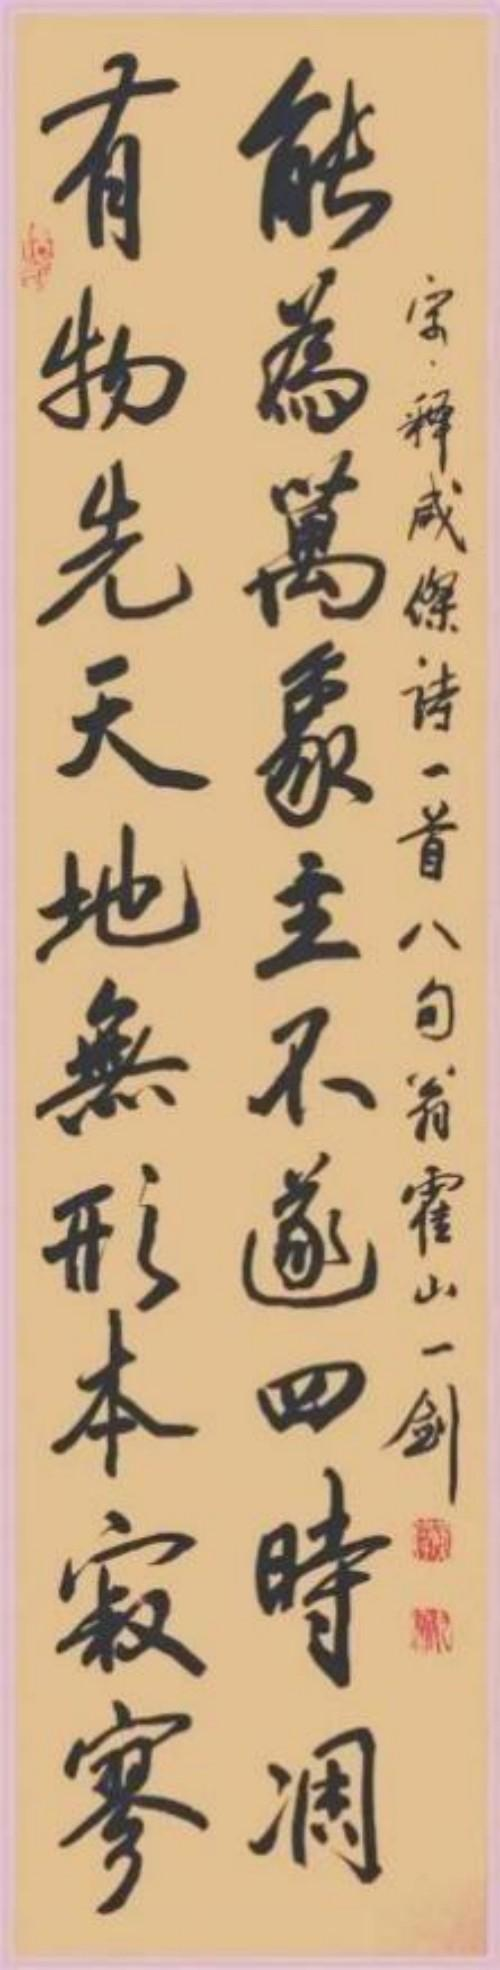 有物先天地無形本寂寥
能為萬象主不遂四時凋
宋·释咸傑詩一首八句翁霍山一剑